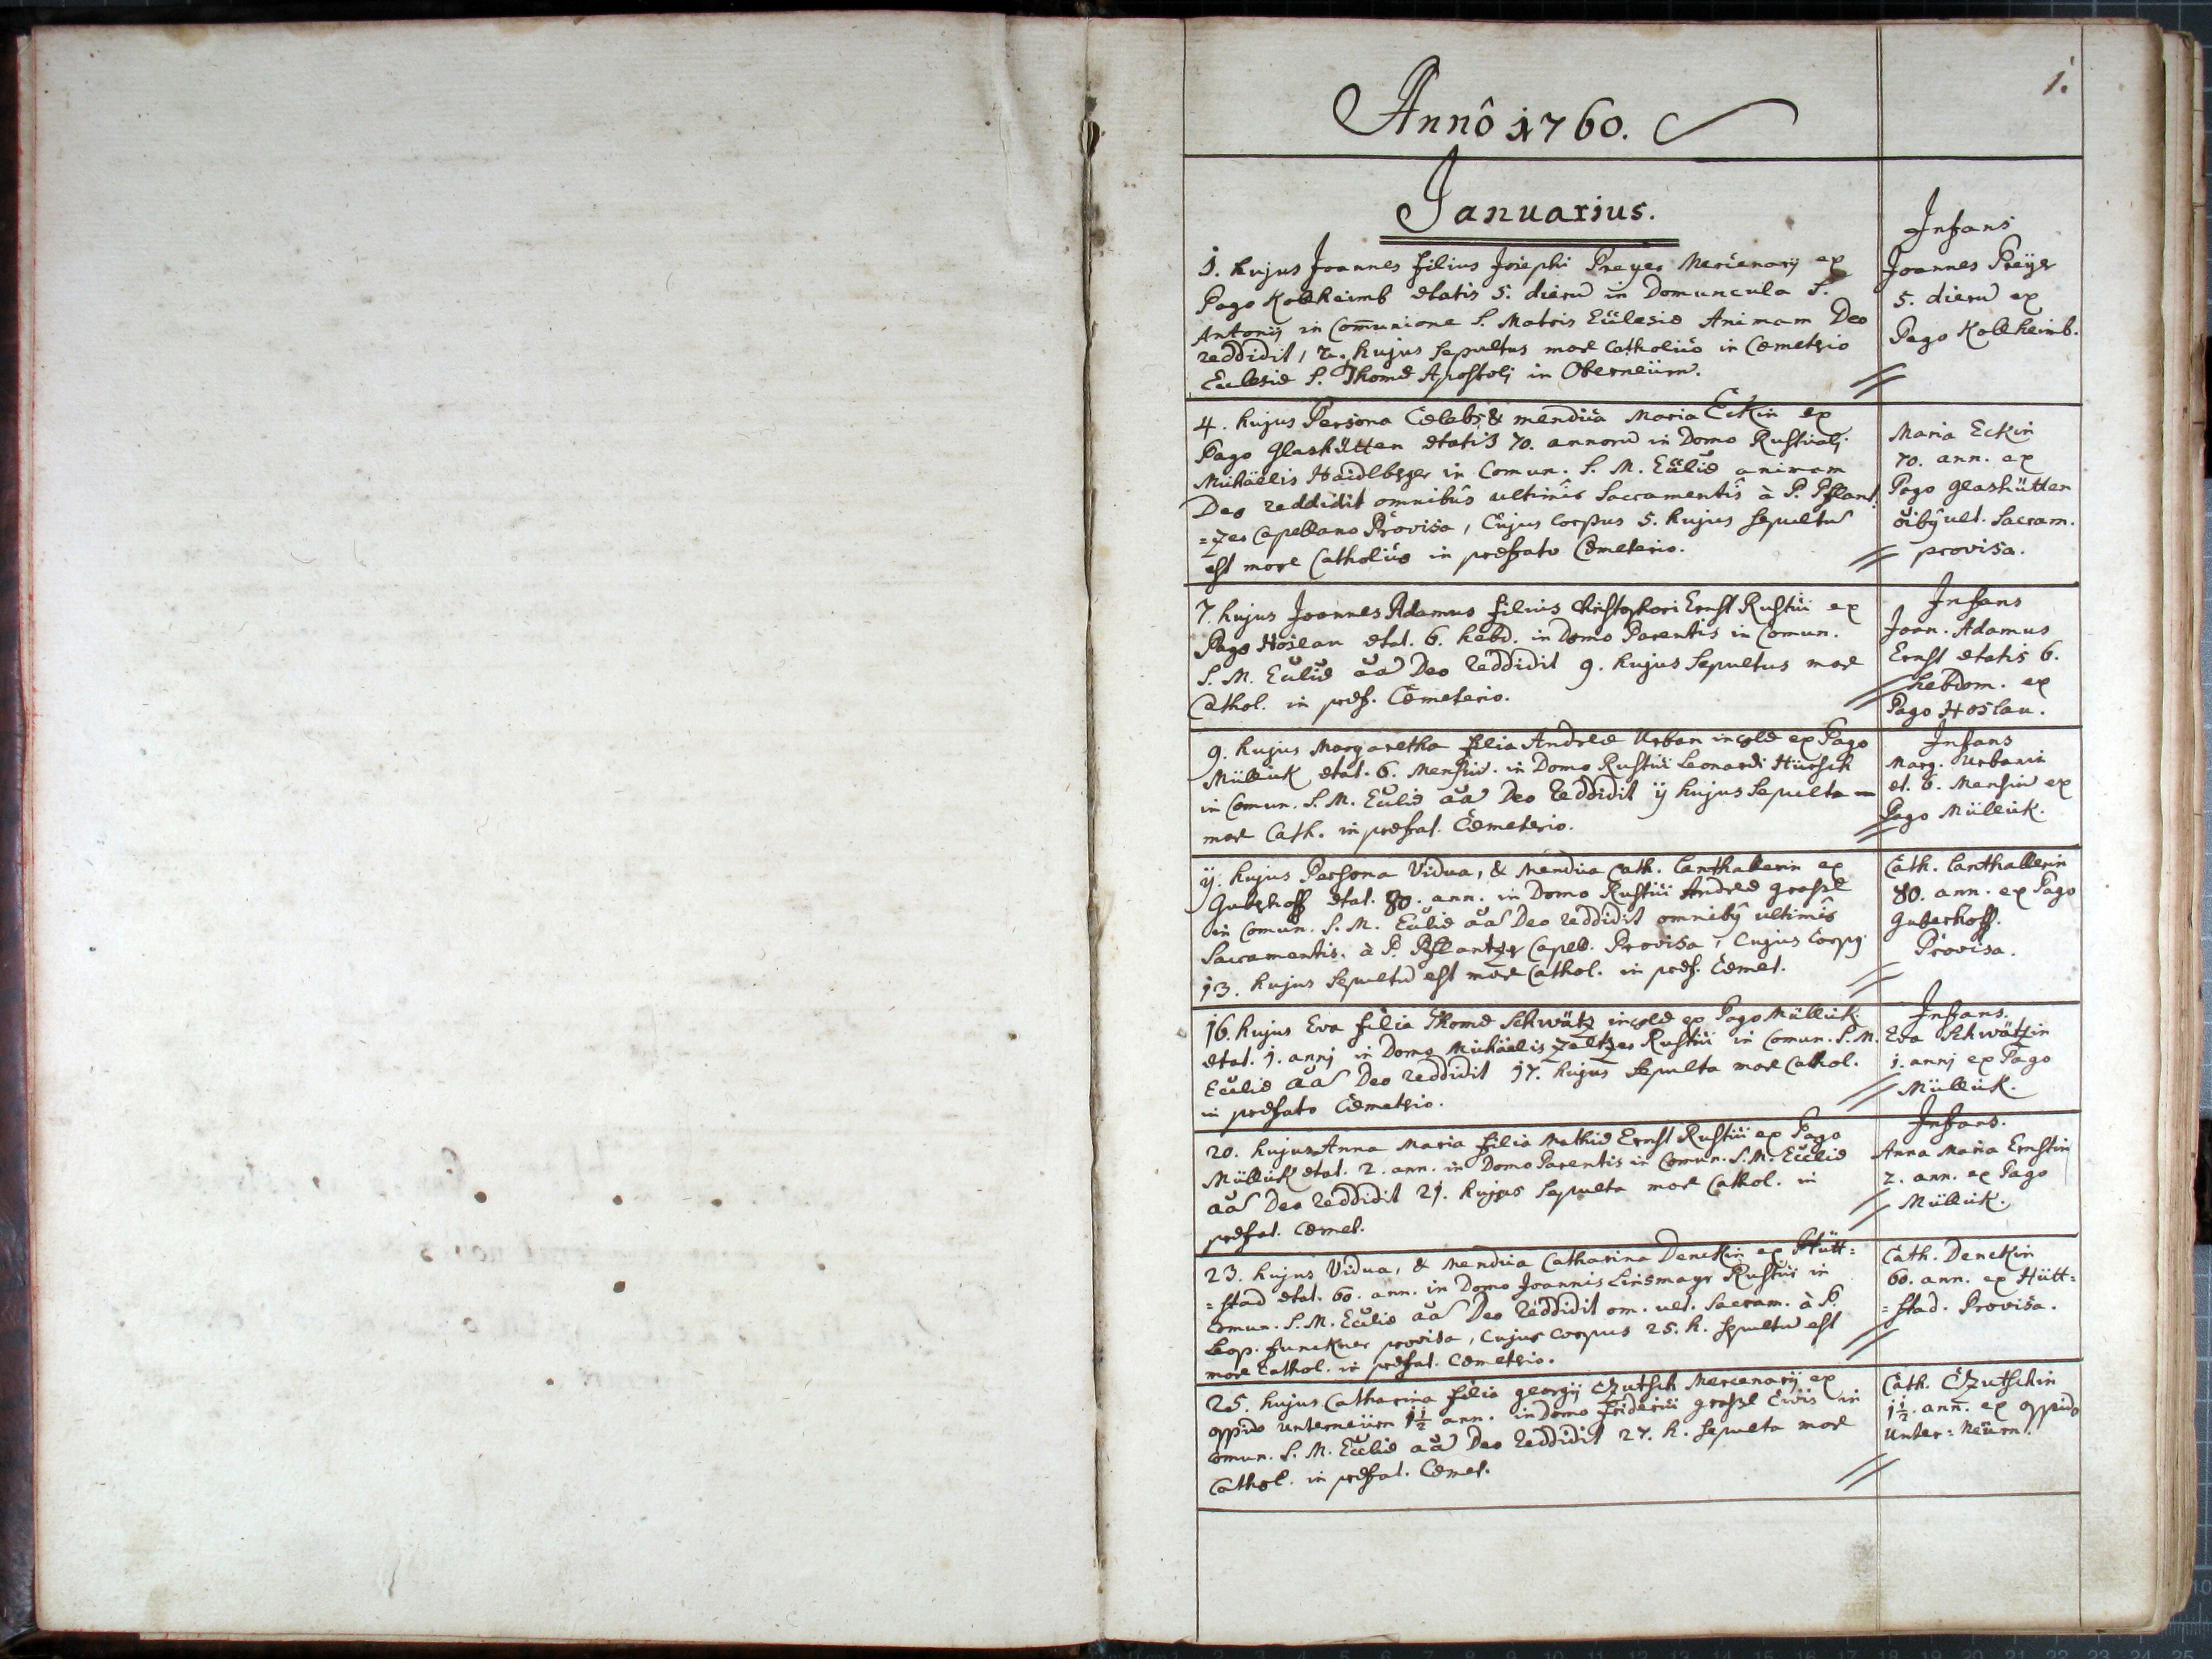 1.
Annô 1760.
Januarius.
1. hujus Joannes filius Josephi Preyer Mercenarij ex
Pago Kollheimb ætatis 5. dierũ in Domuncula S.
Antonij in Com̄unione S. Matris Ecclesiæ Animam Deo
reddidit, 2. hujus sepultus more Catholico in Cœmeterio
Ecclesiæ S. Thomæ Apostolj in Oberneüern.
Infans
Joannes Preÿer
5. dierũ ex
Pago Kollheimb.
4. hujus Persona Cœlebs & mendica Maria Eckin ex
Pago Glashütten ætatis 70. annorũ in Domo Rusticalj
Michäelis Haidlberger in Comun. S. M. Ecc̃liæ animam
Deo reddidit omnibûs ultimîs Sacramentîs à P. Pflant¸
=zer Capellano Provisa, Cujus corpus 5. hujus sepultũ
est more Catholico in præfato Cœmeterio.
Maria Eckin
70. ann. ex
Pago Glashütten
õibꝰ ult. Sacram.
provisa.
7. hujus Joannes Adamus filius Christophori Ernst Rustici ex
Pago Hoslau ætat. 6. hebd. in Domo Parentis in Comun.
S. M. Ecc̃liæ aã Deo reddidit 9. hujus Sepultus more
Cathol. in præf. Cœmeterio.
Infans
Joan. Adamus
Ernst ætatis 6.
hebdom. ex
Pago Hoslau.
9. hujus Margaretha filia Andreæ Urban incolæ ex Pago
Mülleik ætat. 6. Mensiũ. in Domo Rustici Leonardi Hirsch
in Comun. S. M. Ecc̃liæ aã Deo reddidit ij hujus Sepulta —
more Cath. in præfat. Cœmeterio.
Infans
Marg. Urbanin
æt. 6. Mensiũ ex
Pago Mülleik.
ij. hujus Persona Vidua, & Mendica Cath. Canthallerin ex
Guterhoff ætat. 80. ann. in Domo Rustici Andreæ grassl
in Comun. S. M. Ecc̃liæ aã Deo reddidit omnibꝰ ultimîs
Sacramentis. à P. Pflantzer Capell. Provisa, Cujus Corpꝰ
13. hujus Sepultũ est more Cathol. in præf. Cœmet.
Cath. Canthallerin
80. ann. ex Pago
Guterhoff.
Provisa.
16. hujus Eva filia Thomæ Schwätz incolæ ex Pago Mülleik
ætat. 1. annj in Domo Michäelis Zeltzer Rustici in Comun. S. M.
Ecc̃liæ aã Deo reddidit 17. hujus Sepulta more Cathol.
in præfato Cœmeterio.
Infans.
Eva Schwätzin
1. annj ex Pago
Mülleik.
20. hujus Anna Maria filia Mathiæ Ernst Rustici ex Pago
Mülleik ætat. 2. ann. in Domo Parentis in Comun. S. M. Ecc̃liæ
aã Deo reddidit 21. hujus Sepulta more Cathol. in
præfat. Cœmet.
Infans.
Anna Maria Ernstin
2. ann. ex Pago
Mülleik.
23. hujus Vidua, & Mendica Catharina Denckin ex Hütt=
=stad ætat. 60. ann. in Domo Joannis Linsmayr Rustici in
Comun. S. M. Ecc̃liæ aã Deo reddidit om. ult. Sacram. à P.
Leop. funckner provisa, Cujus corpus 25. h. sepultũ est
more Cathol. in præfat. Cœmeterio.
Cath. Denckin
60. ann. ex Hütt=
=stad. Provisa.
25. hujus Catharina filia georgij Czutsch Mercenarij ex
oppido unterneüern 1½ ann. in Domo friderici grassl Civis in
Comun. S. M. Ecc̃liæ aã Deo reddidit 27. h. Sepulta more
Cathol. in præfat. Cœmet.
Cath. Czutschin
1½. ann. ex oppido
Unter=Neüern.